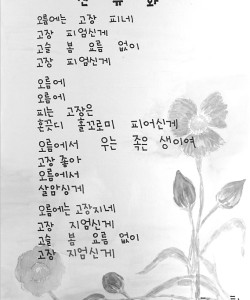 산 유 화
오름에는 고장 피네
고장 피엄신게
고슬 봄 요름 없이
고장 피엄신게
오름에
오름에
피는 고장은
혼끗디 홀꼬로미 피어신게
오름에서 우는 족은 생이여
고장 좋아
오름에서
살암싱게
오름에는 고장지네
고장 지엄신게
고슬 봄 요름 없이
고장 지엄신게